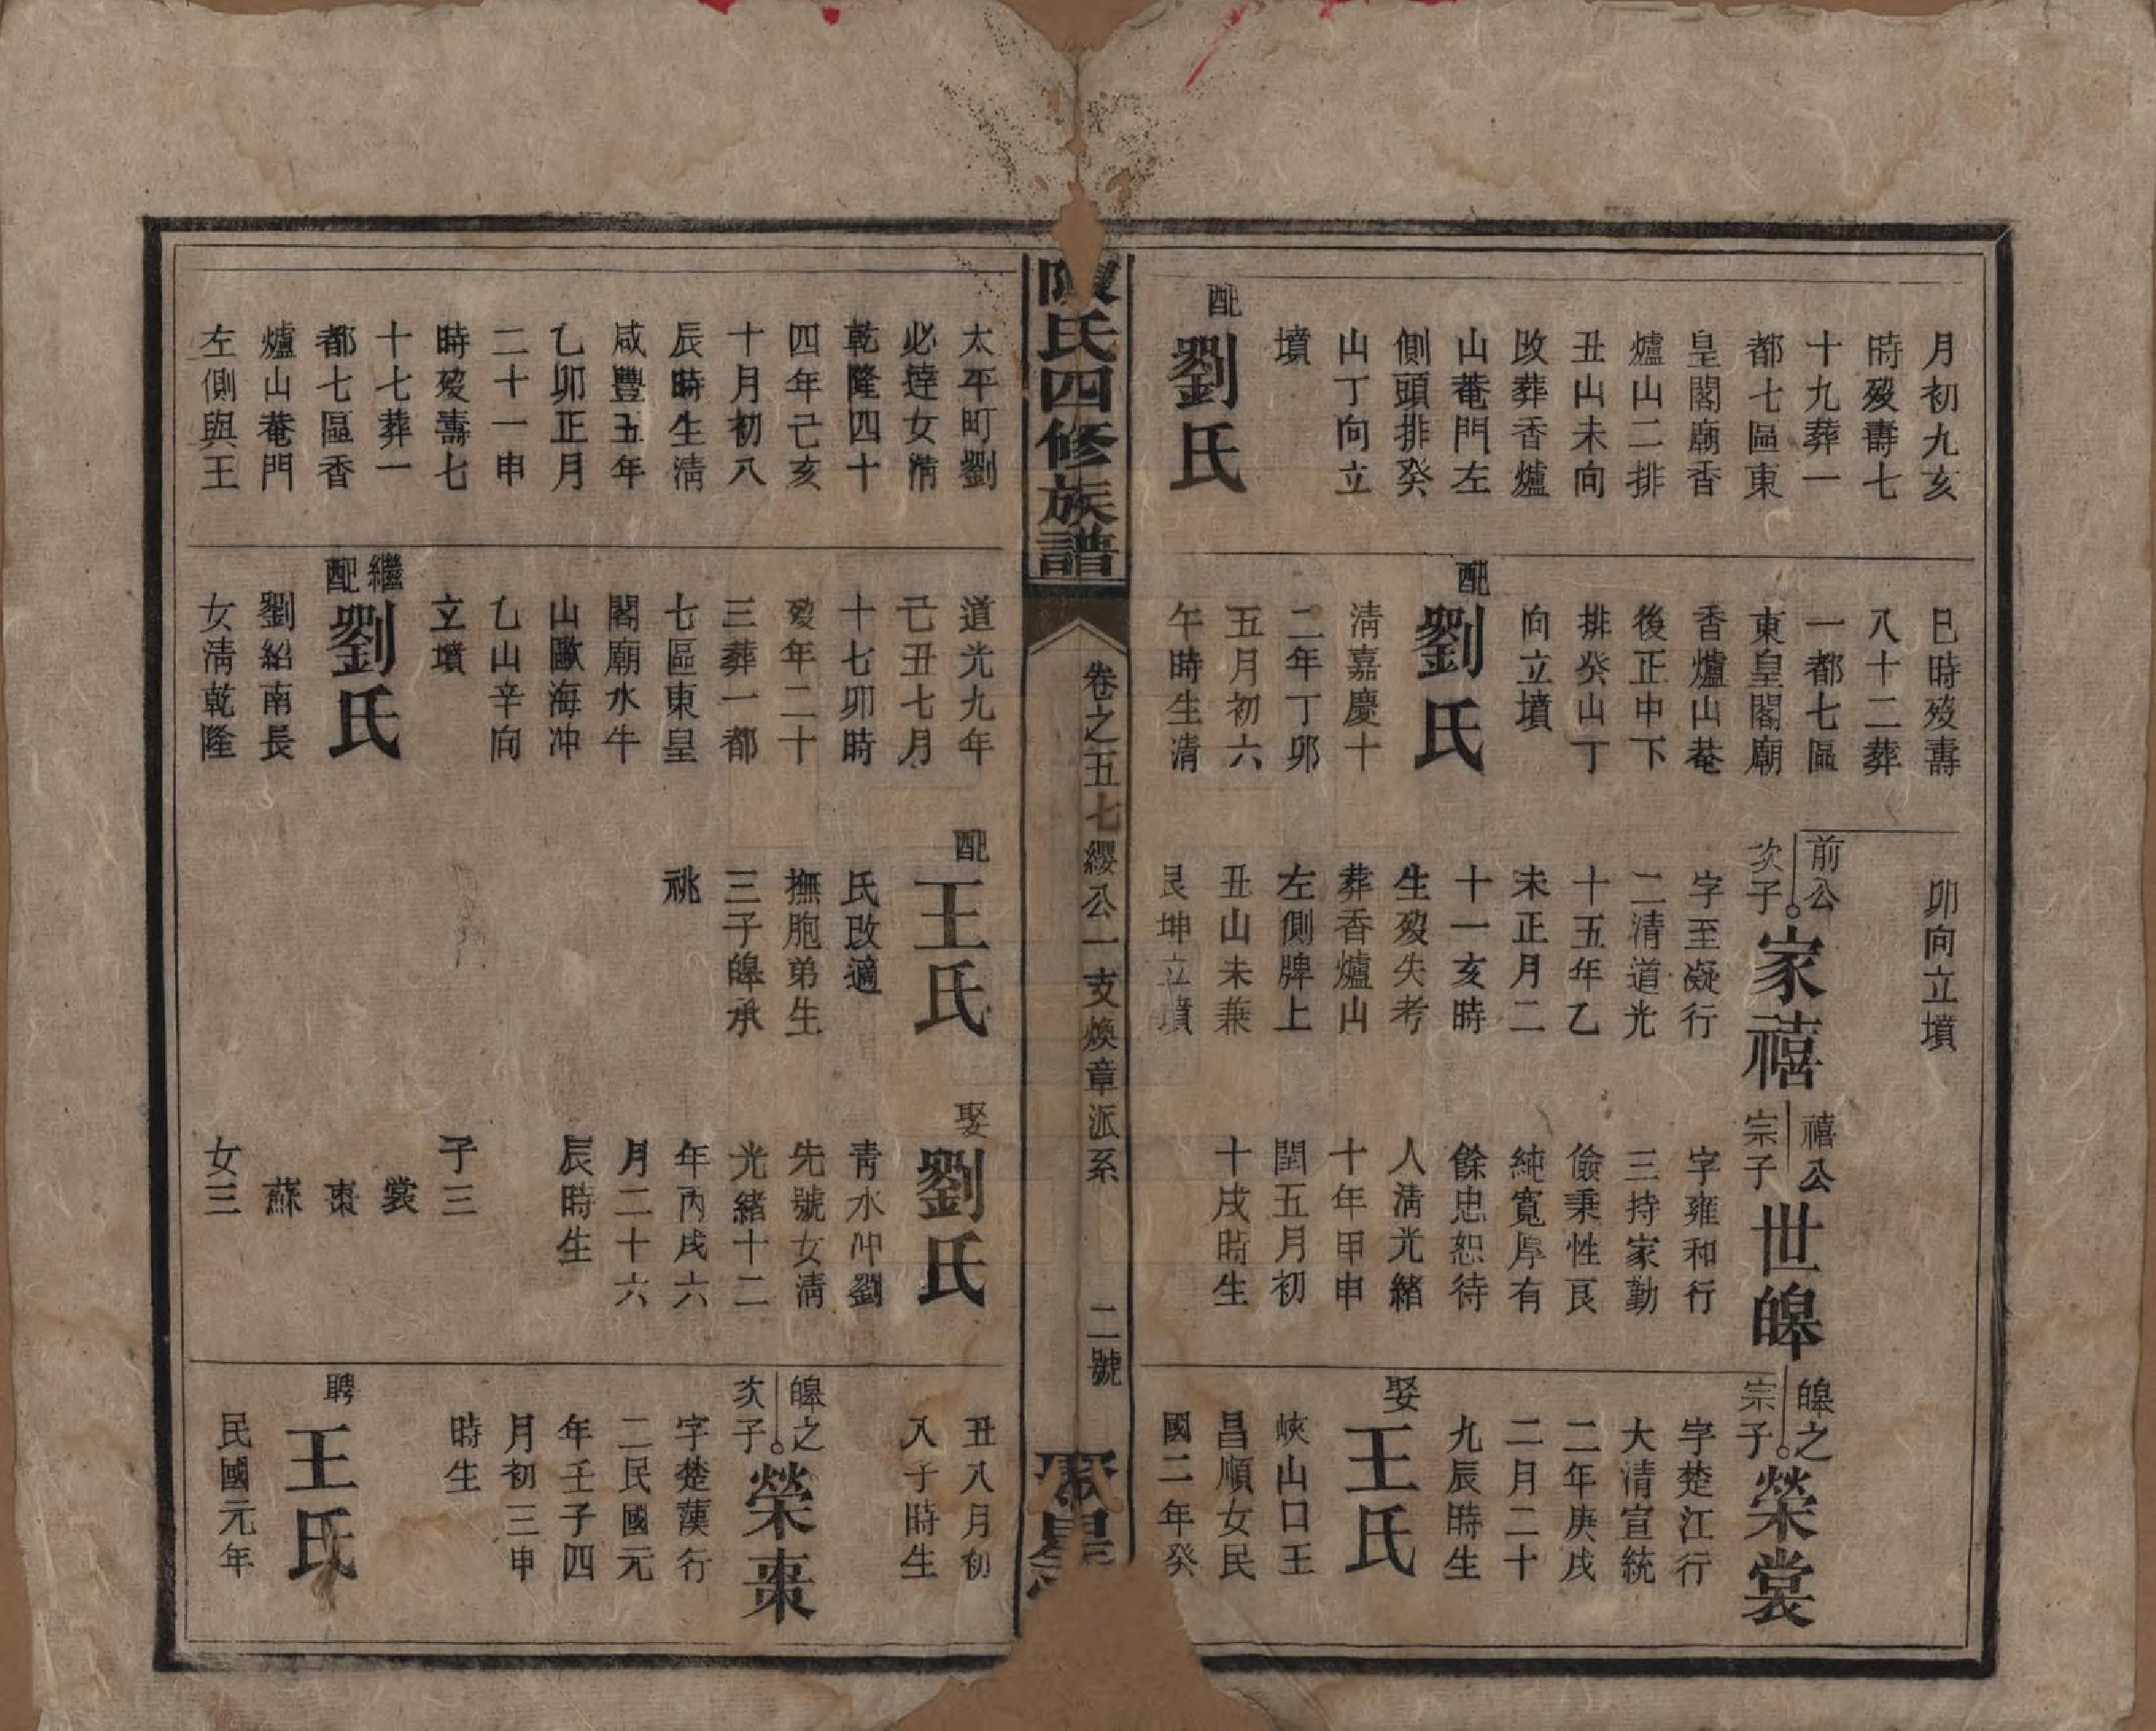 月初九亥
時歿壽七
十九葬一
都七區東
皇閣廟香
爐山二排
丑山未向
改葬香爐
山菴門左
側頭排癸
山丁向立
墳
配
劉氏
巳時歿壽
八十二葬
一都七區
東皇閣廟
香爐山菴
後正中下
排癸山丁
向立墳
配
劉氏
清嘉慶十
二年丁卯
五月初六
午時生清
卯向立墳
前公
次子
家禧
字至凝行
二清道光
十五年乙
未正月二
十一亥時
生歿失考
葬香爐山
左側牌上
丑山未兼
艮坤立墳
禧公
宗子
世皞
字雍和行
三持家勤
儉秉性艮
純寬厚有
餘忠恕待
人清光緒
十年甲申
閏五月初
十戌時生
皞之
宗子
榮裳
字楚江行
大清宣統
二年庚戌
二月二十
九辰時生
娶
王氏
峽山口王
昌順女民
國二年癸
陳氏四修族譜
卷之五七纓公一支煥章派系
二號
聚星
太平町劉
必達女清
乾隆四十
四年己亥
十月初八
辰時生清
咸豐五年
乙卯正月
二十一申
時歿壽七
十七葬一
都七區香
爐山菴門
左側與王
道光九年
己丑七月
十七卯時
歿年二十
三葬一都
七區東皇
閣廟水牛
山歐海冲
乙山辛向
立墳
繼配
劉氏
劉紹南長
女清乾隆
配
王氏
氏改適
撫胞弟生
三子皞承
祧
娶
劉氏
青水冲劉
先號女清
光緒十二
年丙戌六
月二十六
辰時生
子三
裳
棗
蘇
女三
丑八月初
入子時生
皞之
次子
榮棗
字楚蓂行
二民國元
年壬子四
月初三申
時生
聘
王氏
民國元年